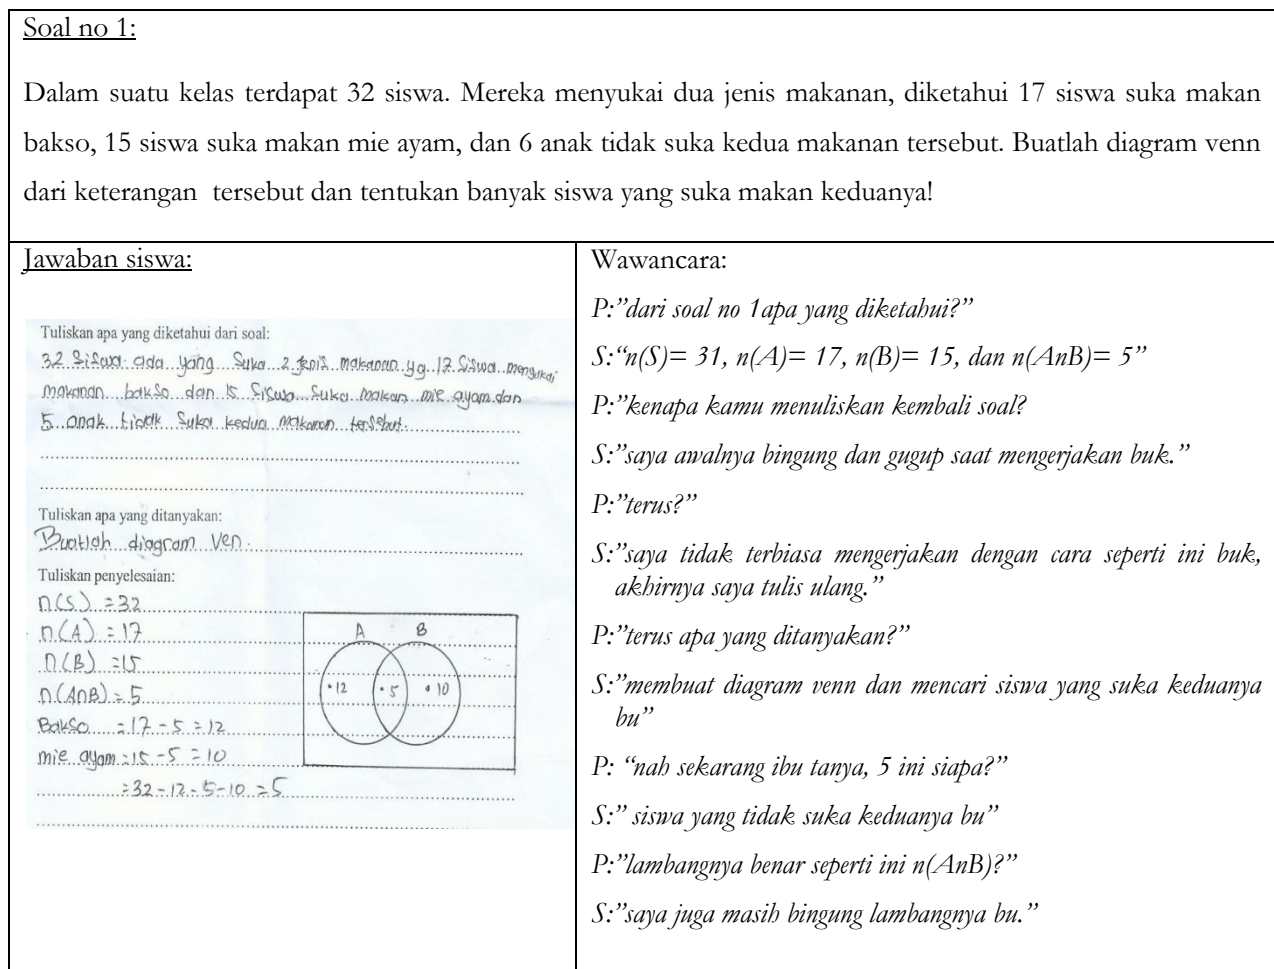 Soal no 1:
Dalam suatu kelas terdapat 32 siswa. Mereka menyukai dua jenis makanan, diketahui 17 siswa suka makan
bakso, 15 siswa suka makan mie ayam, dan 6 anak tidak suka kedua makanan tersebut. Buatlah diagram venn
dari keterangan tersebut dan tentukan banyak siswa yang suka makan keduanya!
Jawaban siswa:
Tuliskan apa yang diketahui dari soal:
32 siswa ada yang suka 2 jenis makanan yg 17 siswa menyukai
makanan bakso dan 15 siswa suka makan mie ayam dan
5 anak tidak suka kedua makanan tersebut.
Tuliskan apa yang ditanyakan:
Buatlah diagram Ven.
Tuliskan penyelesaian:
n(S) = 32
n(A) = 17
n(B) = 15
n(AnB) = 5
Bakso = 17 - 5 = 12
mie ayam = 15 - 5 = 10
= 32 - 12 - 5 - 10 = 5
A B
• 12 • 5 • 10
Wawancara:
P:”dari soal no 1apa yang diketahui?”
S:“n(S)= 31, n(A)= 17, n(B)= 15, dan n(AnB)= 5”
P:”kenapa kamu menuliskan kembali soal?
S:”saya awalnya bingung dan gugup saat mengerjakan buk.”
P:”terus?”
S:”saya tidak terbiasa mengerjakan dengan cara seperti ini buk,
akhirnya saya tulis ulang.”
P:”terus apa yang ditanyakan?”
S:”membuat diagram venn dan mencari siswa yang suka keduanya
bu”
P: “nah sekarang ibu tanya, 5 ini siapa?”
S:” siswa yang tidak suka keduanya bu”
P:”lambangnya benar seperti ini n(AnB)?”
S:”saya juga masih bingung lambangnya bu.”